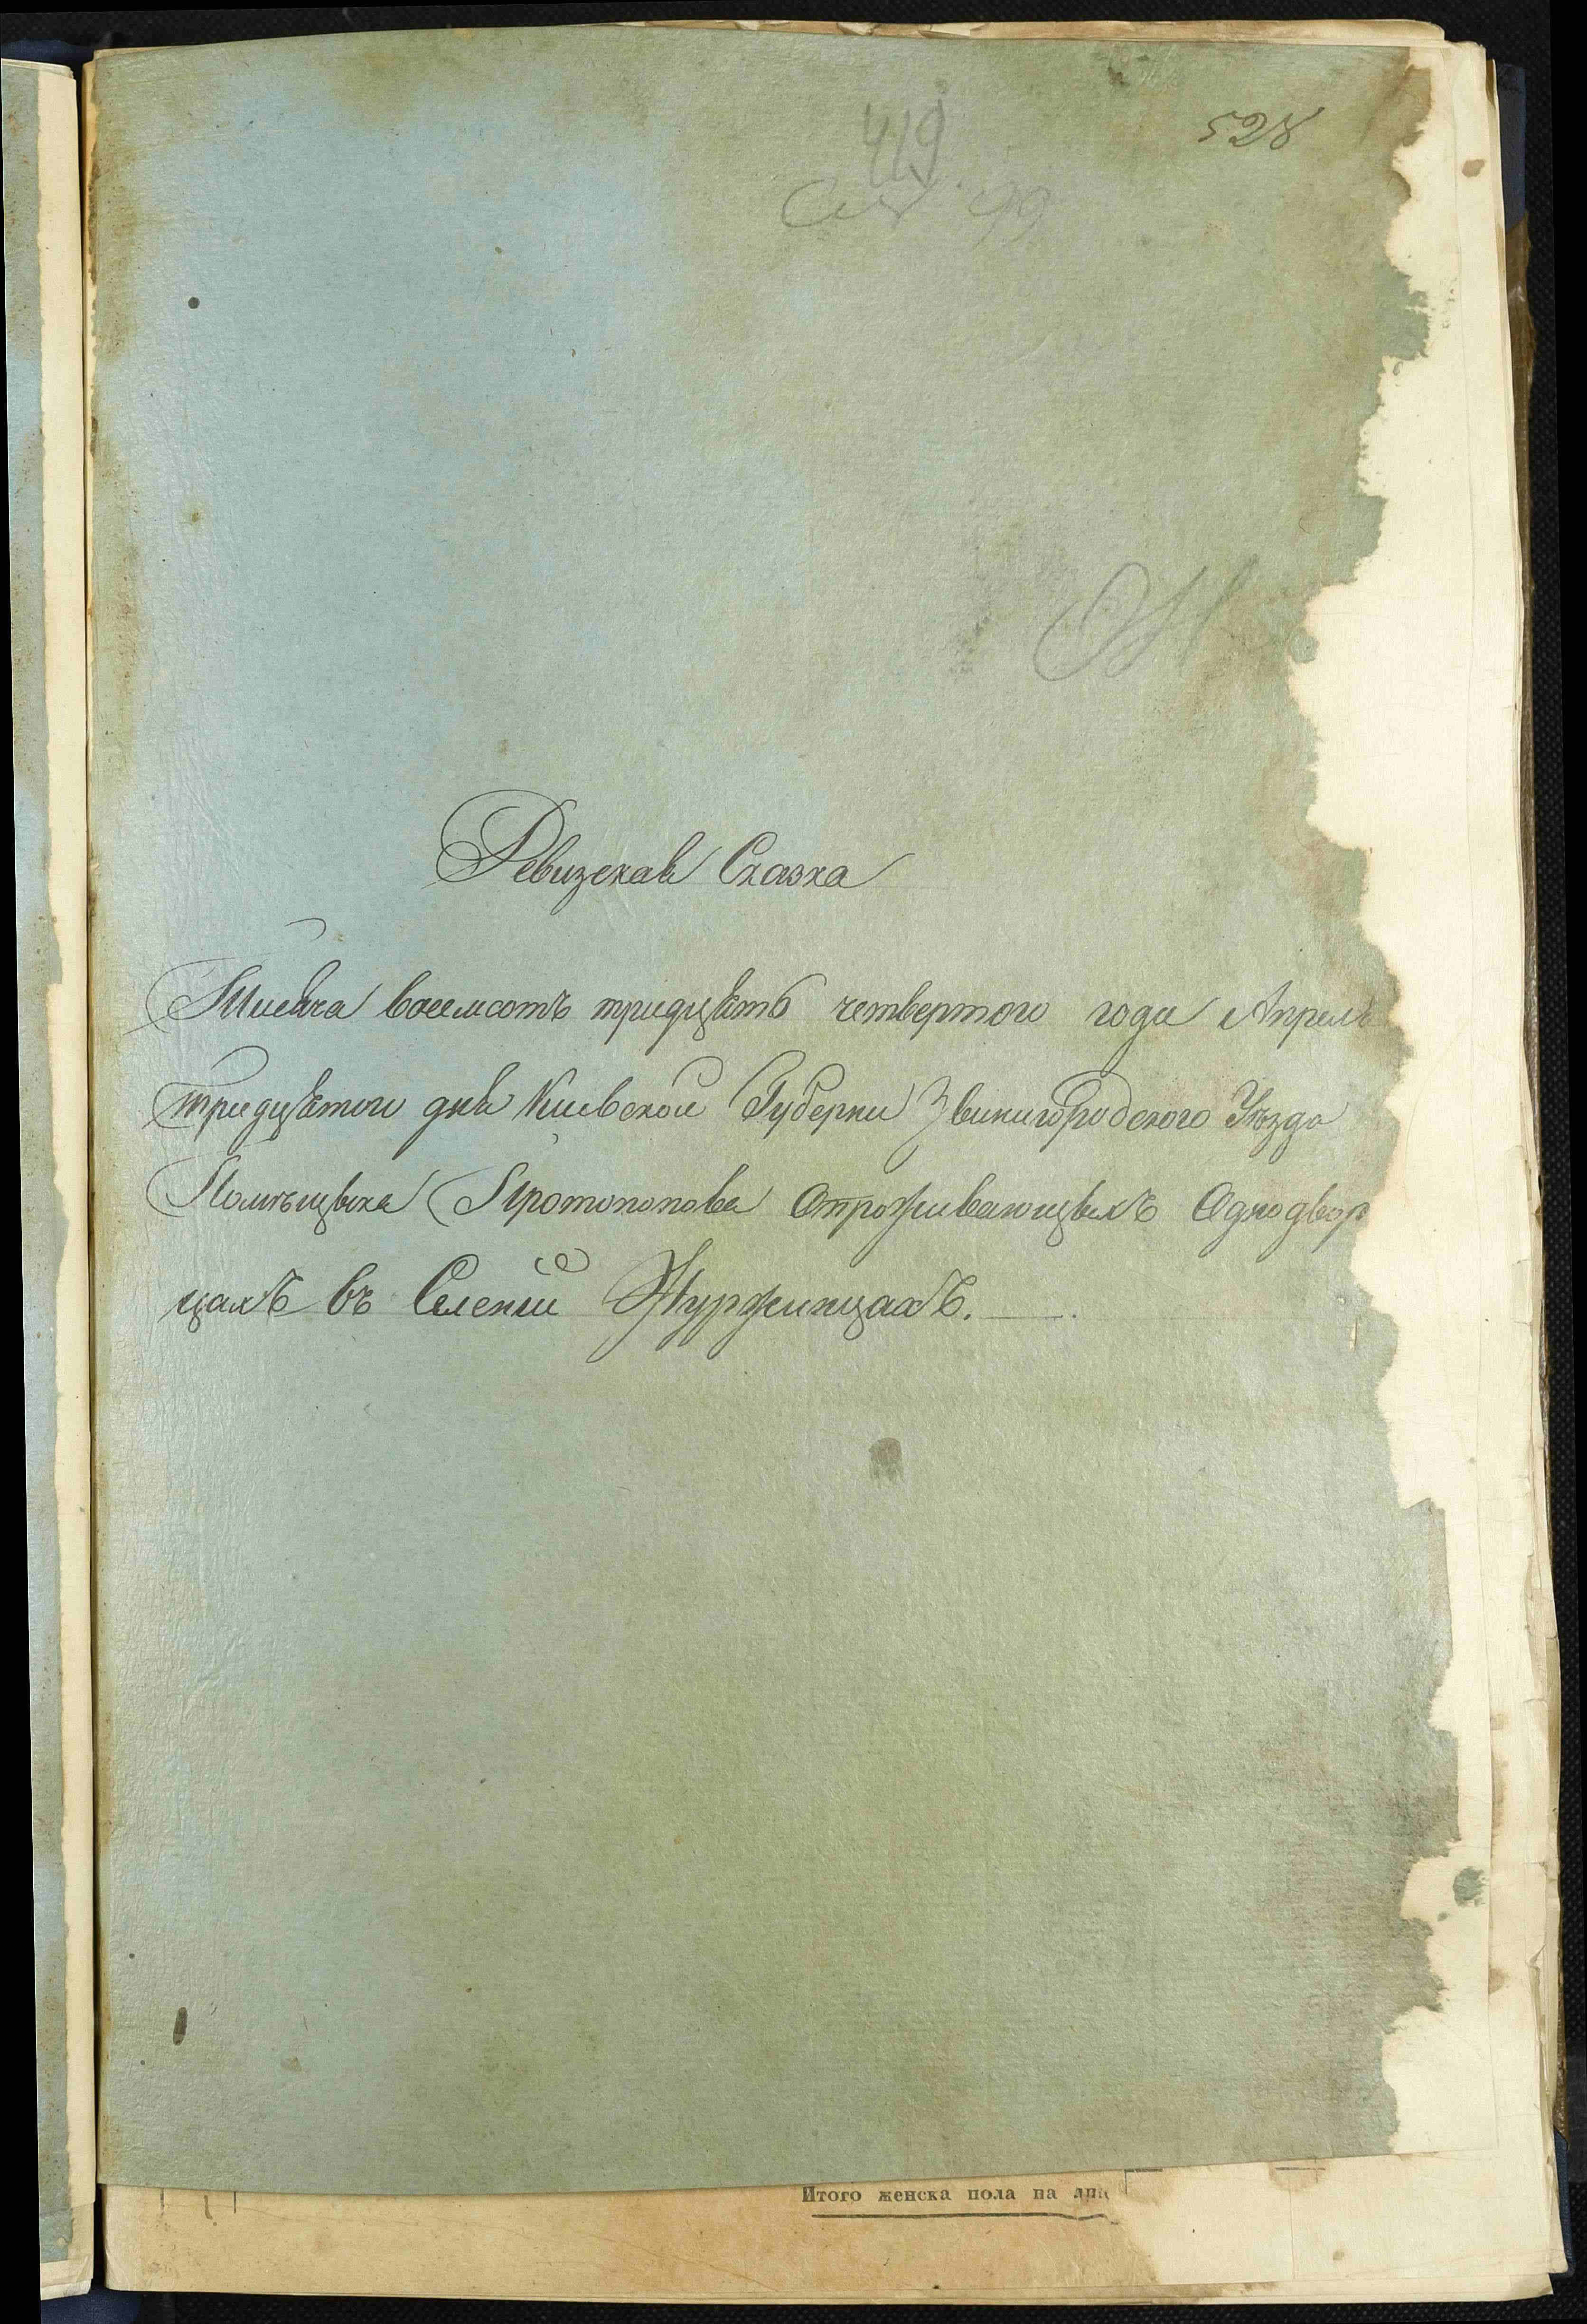 419
528
99
Ревизская Сказка
Тысяча восемсотъ тридцять четвертого года Апреля
тридцятого дня Киевской Губернии Звинигородского Уезда
Помѣщика Протопопова Опроживающихъ Однодвор
цахъ въ Селении Журжинцахъ.
Итого женска пола на